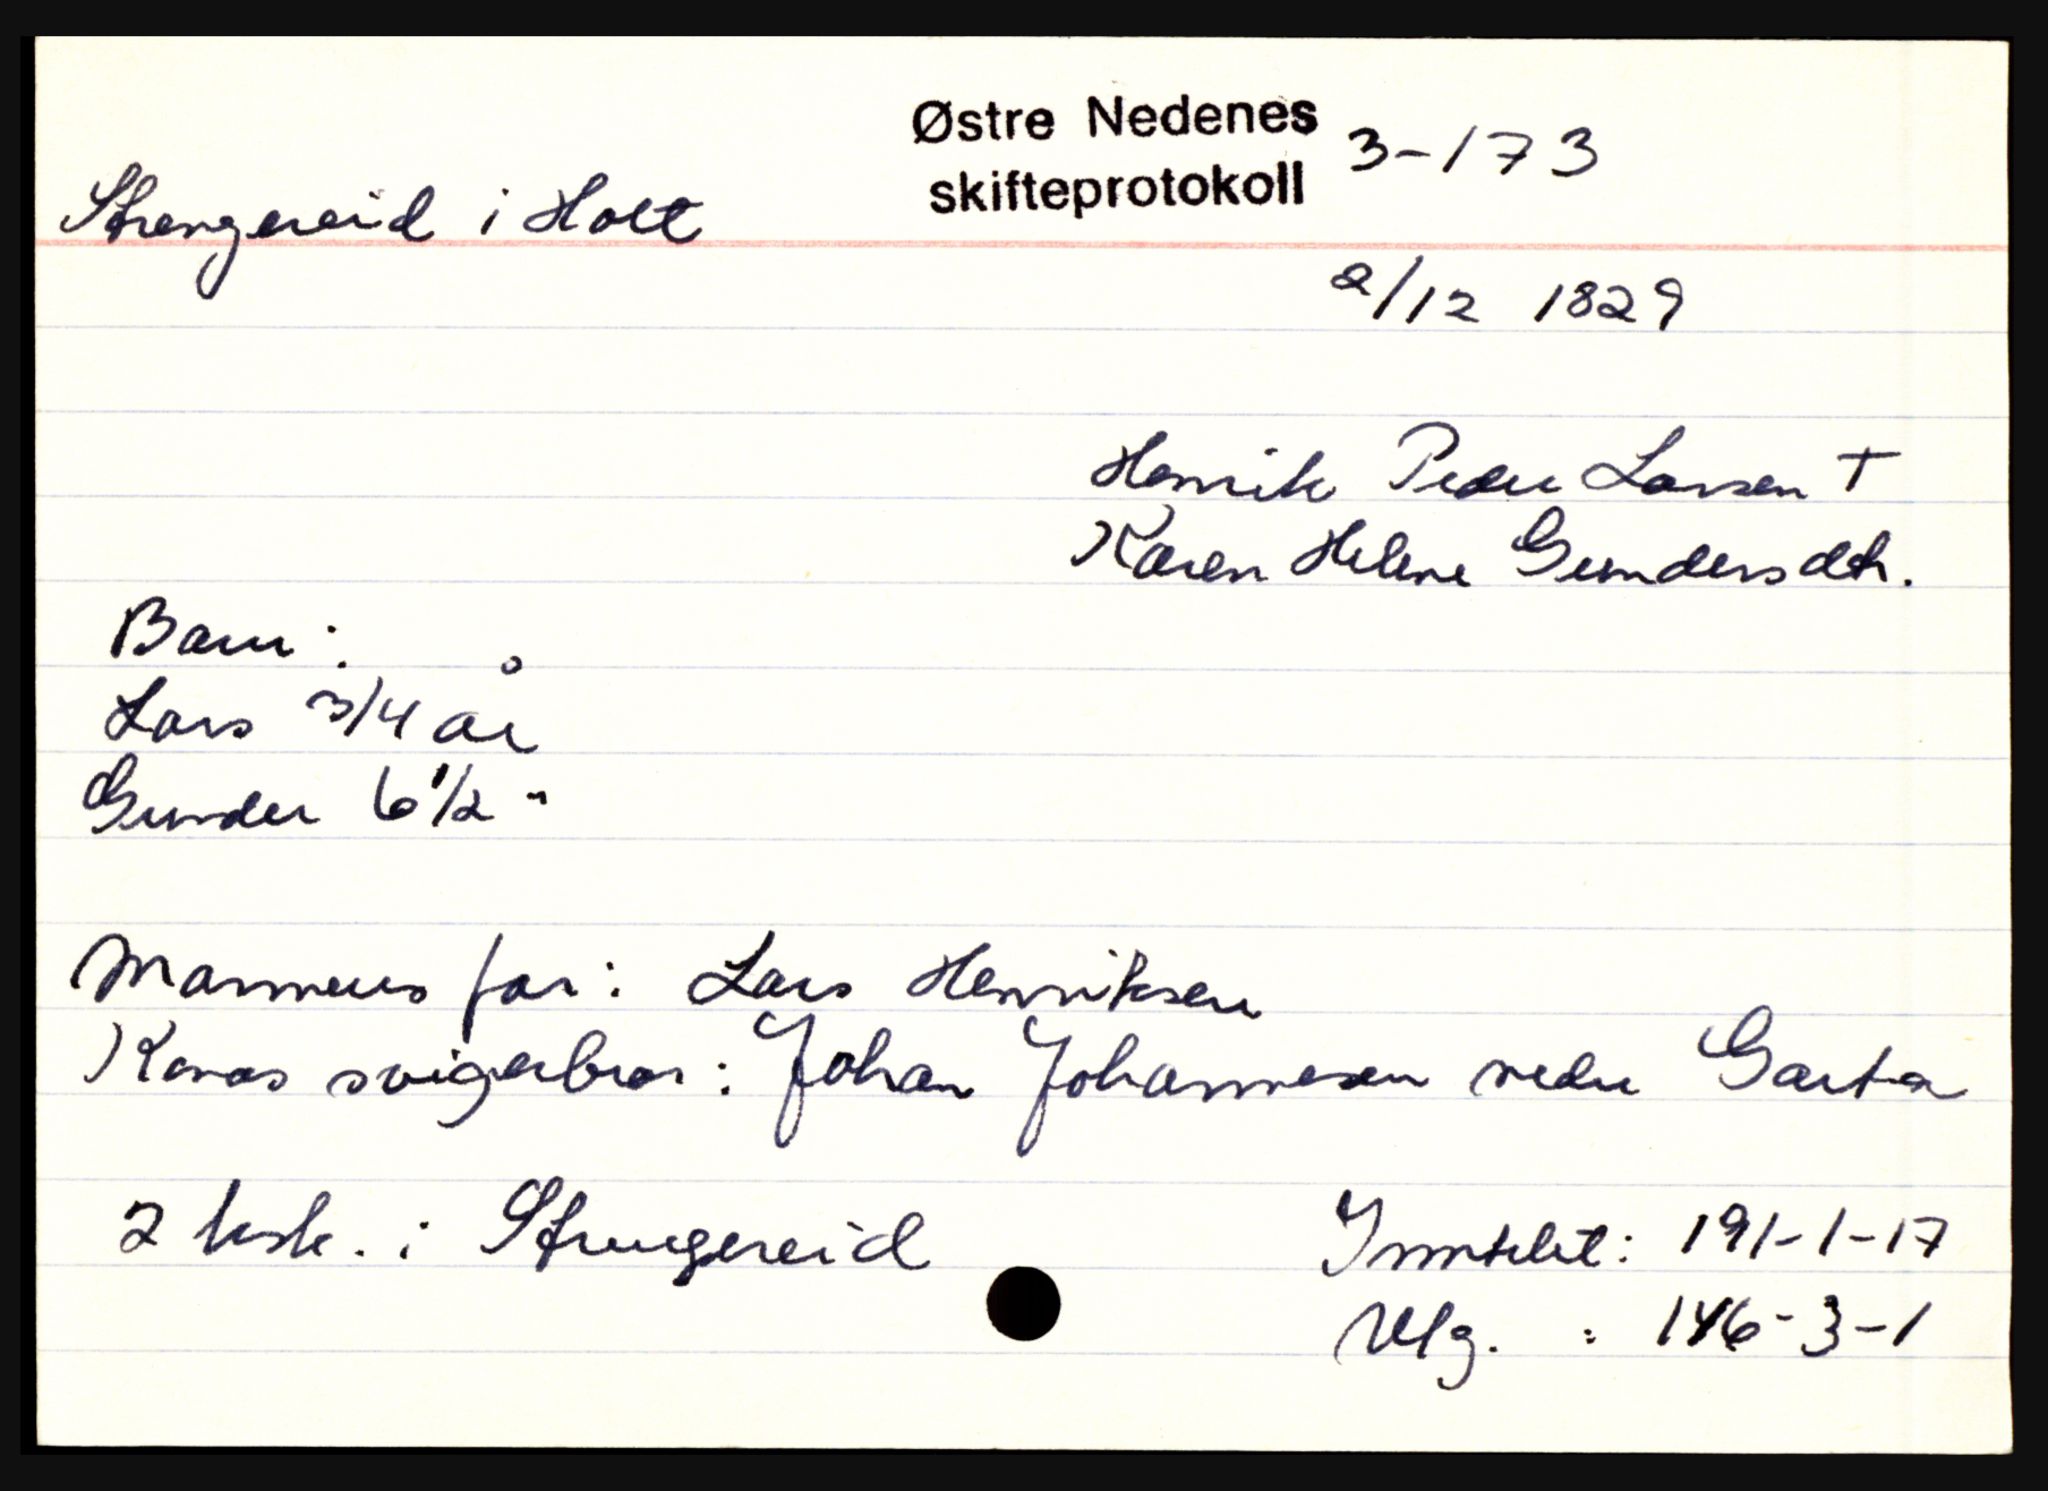 Østre Nedenes
skifteprotokoll 3-173
Strengereid i Holt
2/12 1829
Henrik Peder Larsen †
Karen Helene Gundersdtr.
Barn:
Lars 3/4 år
Gunder 6 1/2 "
Mannens far: Lars Henriksen
Konas svigerbror: Johan Johannesen nedre Garta
2 hsk. i Strengereid
Inntekt: 191-1-17
Utg. : 146-3-1